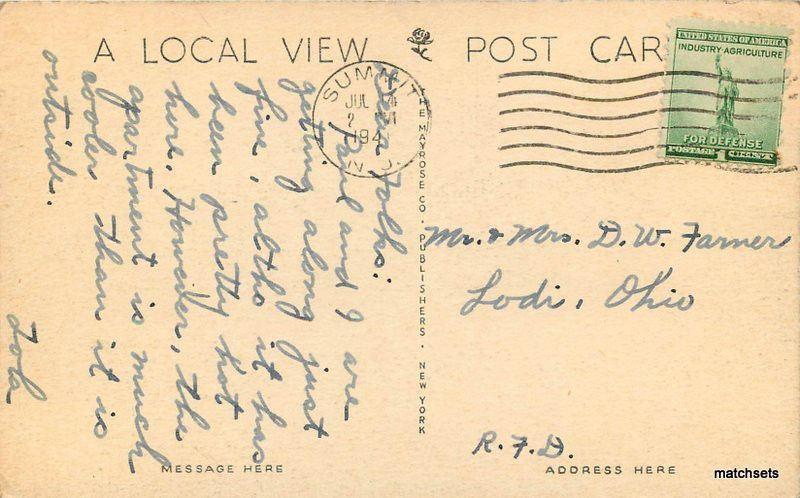 A LOCAL VIEW
POST CAR
UNITED STATES OF AMERICA
INDUSTRY·AGRICULTURE
FOR DEFENSE
POSTAGE 1 CENT
SUMMIT
JUL
2
194
N.J.
Dear Folks:
Paul and I are
getting along just
fine, altho it has
been pretty hot
here. However, the
apartment is much
cooler than it is
outside.
Iola
THE MAYROSE CO. PUBLISHERS. NEW YORK
Mr. & Mrs. D. W. Farner
Lodi, Ohio
R.F.D.
MESSAGE HERE
ADDRESS HERE
matchsets